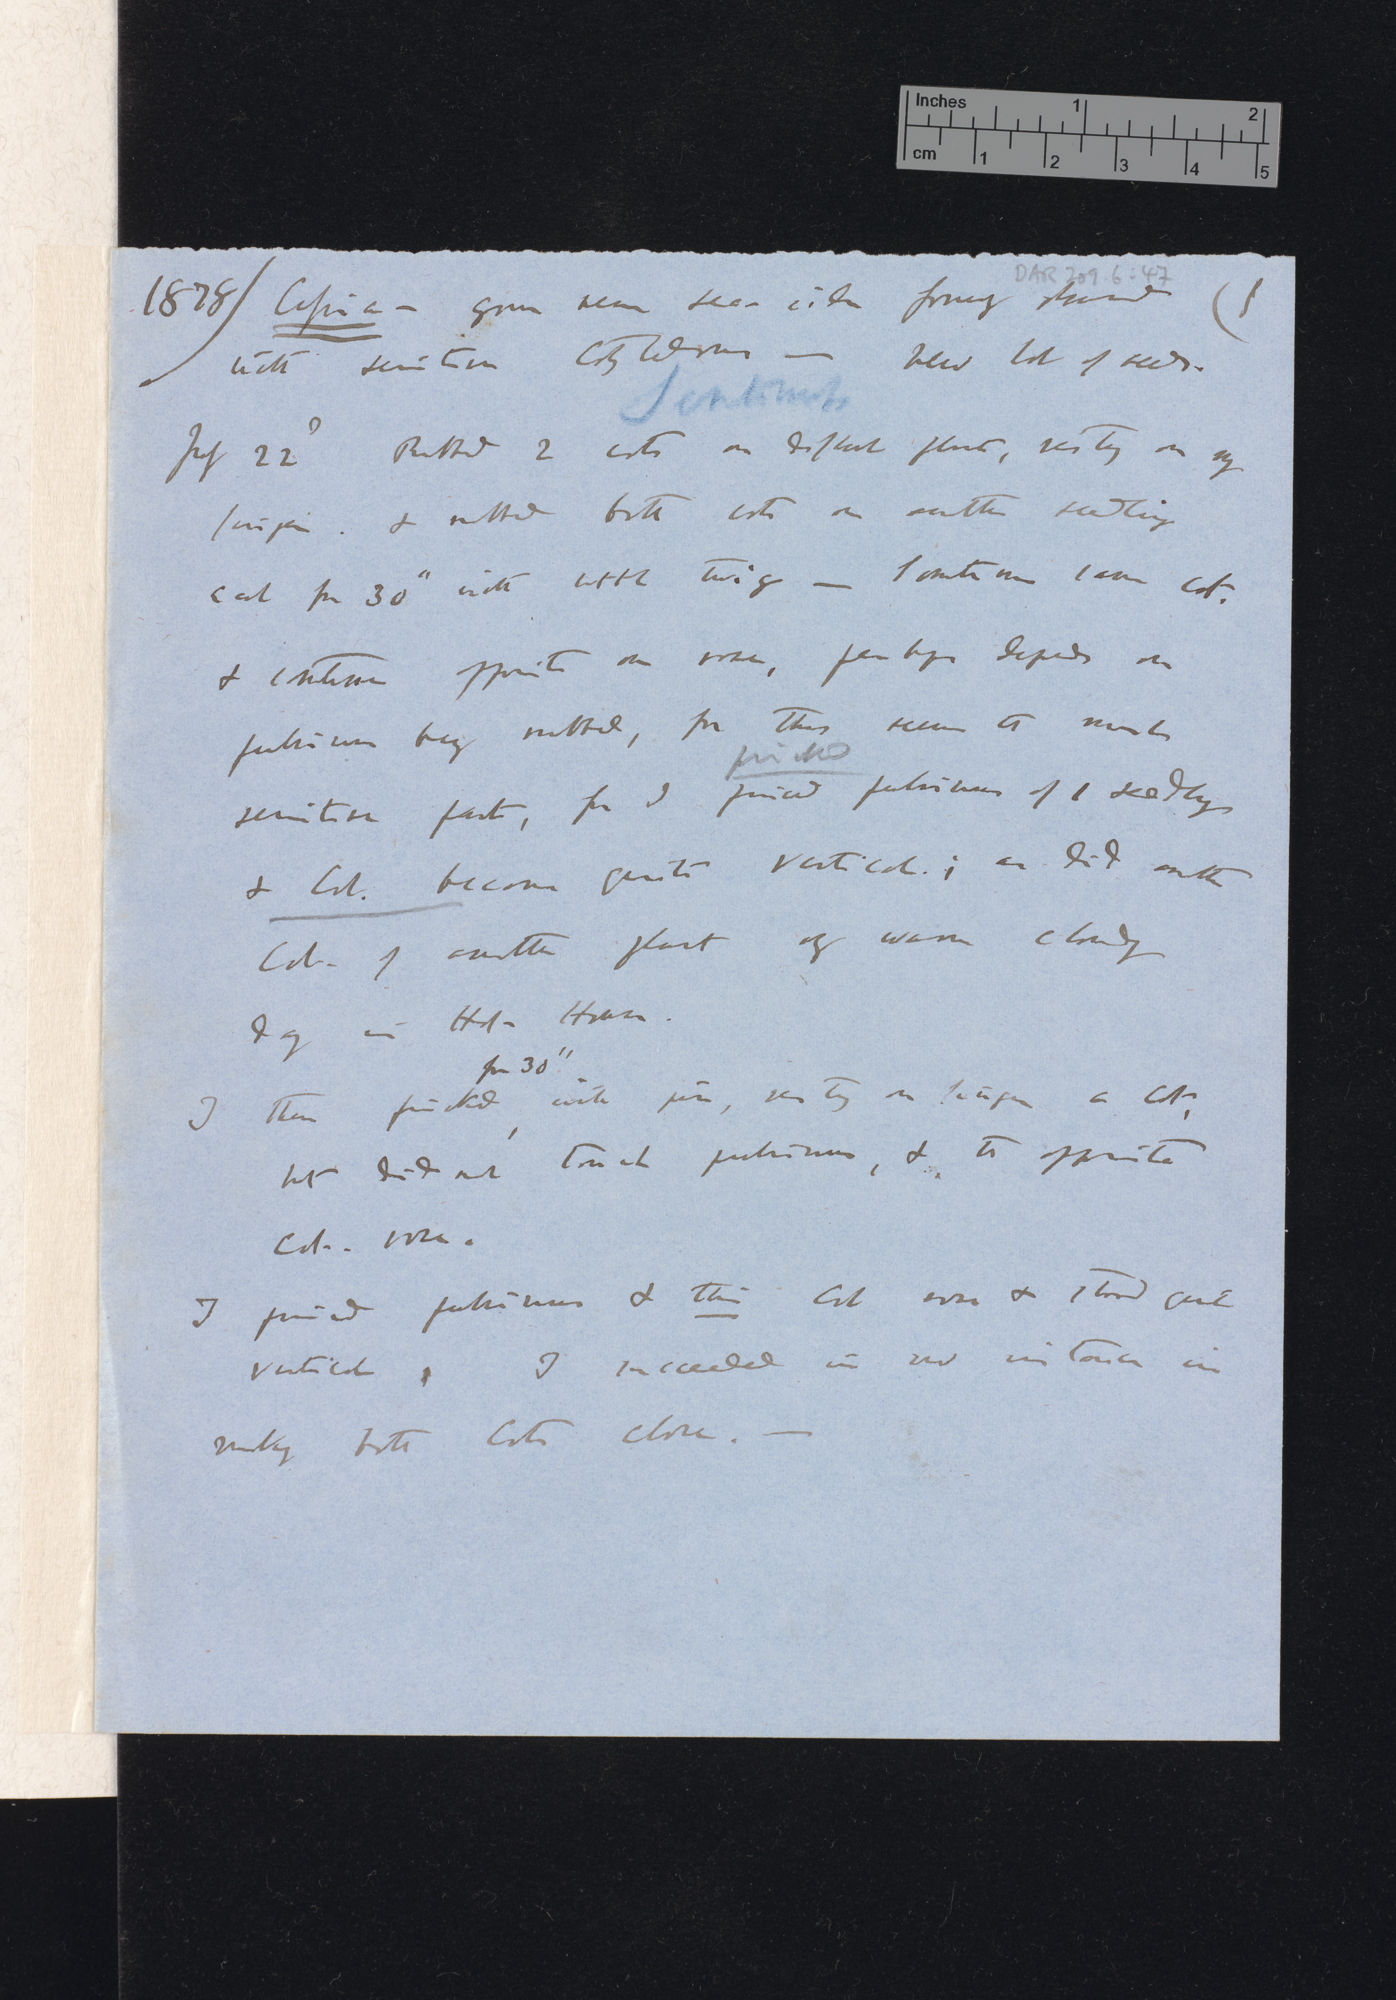 DAR 209.6:47
1878/ Cassia — given near sea-side from ground (1
with sensitive Cotyledons — new lot of seeds.
Sensitiveness
July 22d Rubbed 2 cots on different plants, resting on my
finger. & rubbed both cots on another seedling
each for 30" with little twig — sometimes same cot.
& sometimes opposite one rose, perhaps depends on
pulvinus being rubbed, for this seems to much
pricked
sensitive part, for I pricked pulvinus of 1 seedling
& Cot. became quite vertical; as did another
Cot. of another plant on warm cloudy
day in Hot-House.
for 30"
I then pricked, with pin, resting on finger a Cot,
but did not touch pulvinus, & the opposite
Cot. rose.
I pricked pulvinus & this Cot rose & stood quite
vertical, I succeeded in no instance in
making both Cots close. —
Inches 1 2
cm 1 2 3 4 5